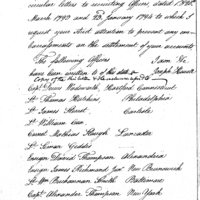 circular letters to recruiting Officers, dated
March 1793 and 23. January 1794 to which I
request your strict attention to prevent any
embarrassments in the settlement of your accounts
The following Officers I am &c
have been written to of this date & Joseph Howell
Copy of the letter to
Capt. Decius Wadsworth, Hartford Connecticut
Lt. Thomas Hutchins, Philadelphia
Lt. James Carlisle
Lt. William
Cornet Mathias Slough Lancaster
Lt. Simon Geddes
Ensign David Thompson Alexandria
Ensign James Richmond New Brunswick
Lt. Wm Buchannan Smith Baltimore
Capt. Alexander Thompson New York